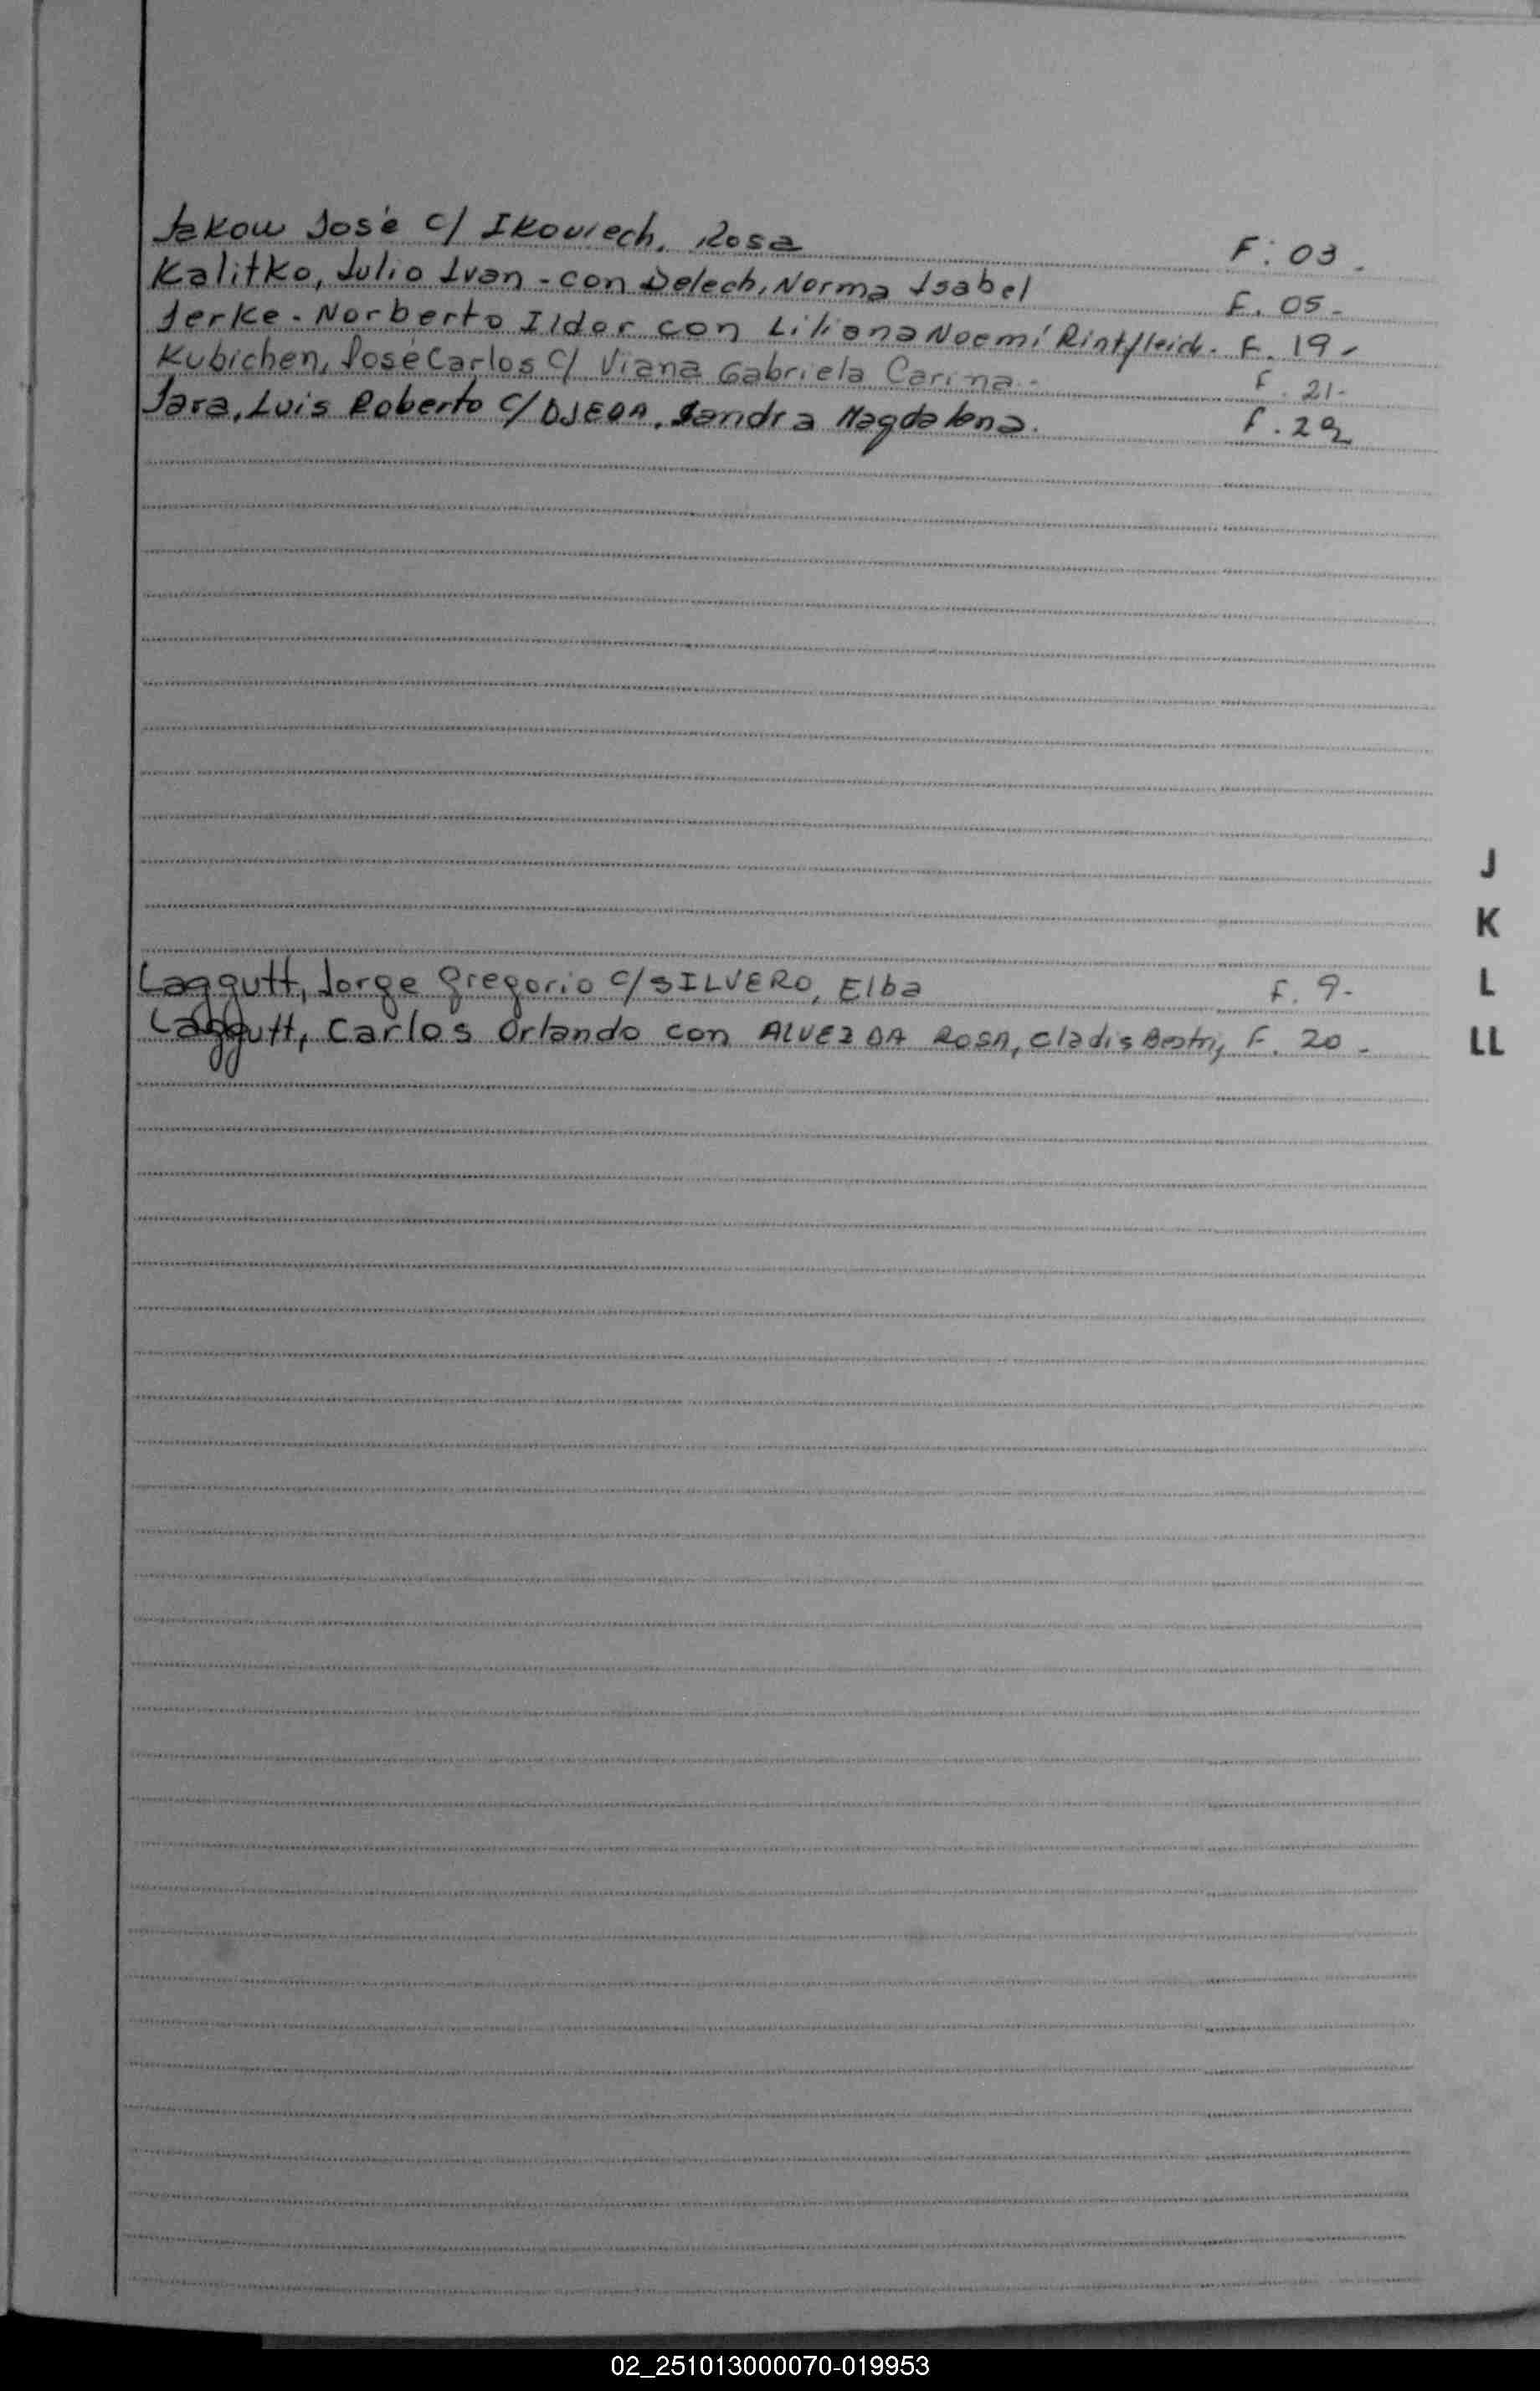 Jakow José c/ Ikowiech, Rosa F: 03.
Kalitko, Julio Ivan - con Delech, Norma Isabel F. 05-
Jerke - Norberto Ildor con Liliana Noemí Rintfleich. F. 19-
Kubichen, José Carlos c/ Viana Gabriela Carina- F. 21-
Jara, Luis Roberto c/ OJEDA, Sandra Magdalena. F. 29
J
K
Laggutt, Jorge Gregorio c/ SILVERO, Elba F. 9-
L
Laggutt, Carlos Orlando con ALVEZ DA ROSA, Cladis F. 20-
LL
02_251013000070-019953